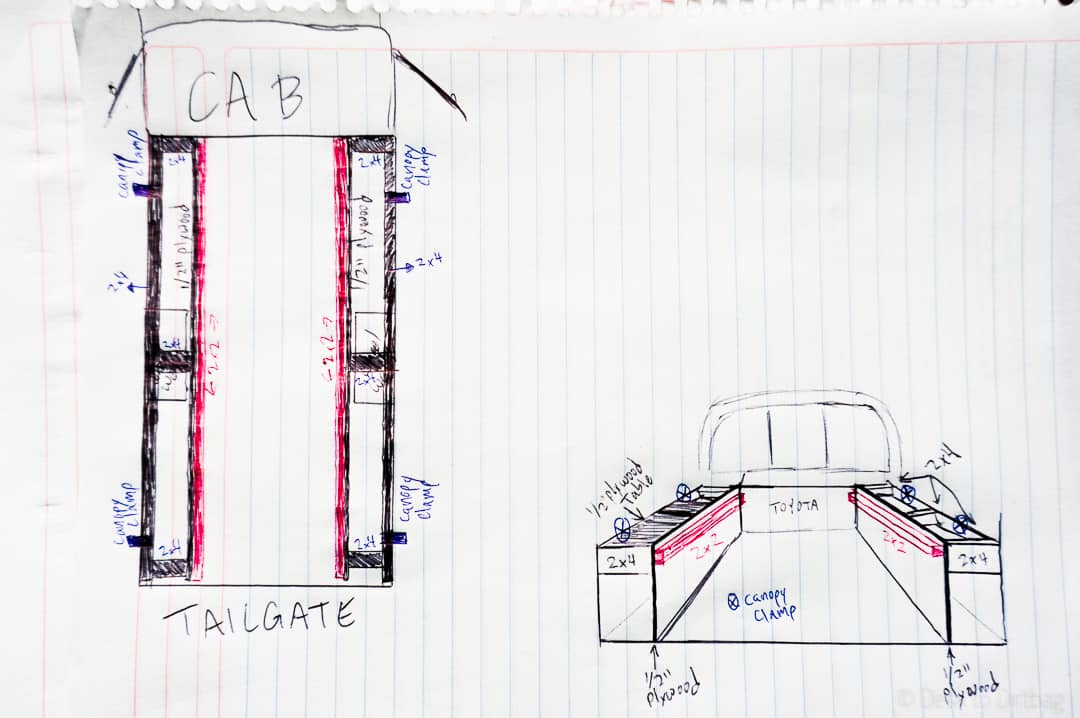 CAB
canopy
clamp
canopy
clamp
2x4
2x4
1/2" plywood
1/2" plywood
2x4
2x4
← 2x2 →
← 2x2 →
2x4
2x4
canopy
clamp
canopy
clamp
2x4
2x4
TAILGATE
1/2" plywood
Table
2x4
TOYOTA
2x2
2x2
2x4
2x4
canopy
clamp
1/2"
plywood
1/2"
plywood